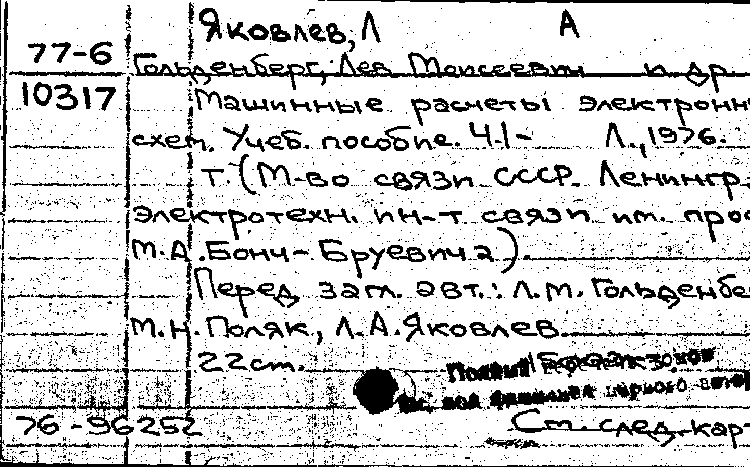 Яковлев, Л А
77-6
Гольденберг, Лев Моисеевич и др
10317
Машинные расчеты электронн
схем. Учеб. пособие. Ч.1- Л., 1976.
т. (М-во связи СССР. Ленингр.
электротехн. ин-т связи им. проф
М.А.Бонч-Бруевича).
Перед загл. авт.: Л.М. Гольденбе
М.Н. Поляк, Л.А.Яковлев.
22см.
под фамилией первого
76-96252
См. след. карт